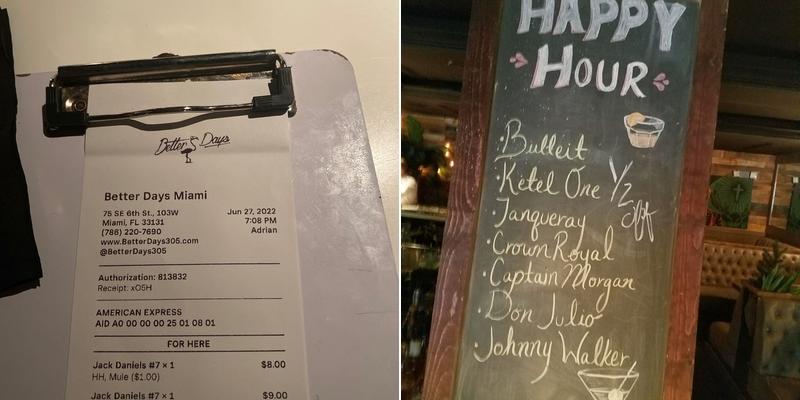 Better Days
Better Days Miami
75 SE 6th St., 103W
Miami, FL 33131
(786) 220-7690
www.BetterDays305.com
@BetterDays305
Jun 27, 2022
7:08 PM
Adrian
Authorization: 813832
Receipt: xO5H
AMERICAN EXPRESS
AID A0 00 00 00 25 01 08 01
FOR HERE
Jack Daniels #7 × 1 $8.00
HH, Mule ($1.00)
Jack Daniels #7 × 1 $9.00
HAPPY
HOUR
·Bulleit
·Ketel One
·Tanqueray
·Crown Royal
·Captain Morgan
·Don Julio
·Johnny Walker
1/2
off